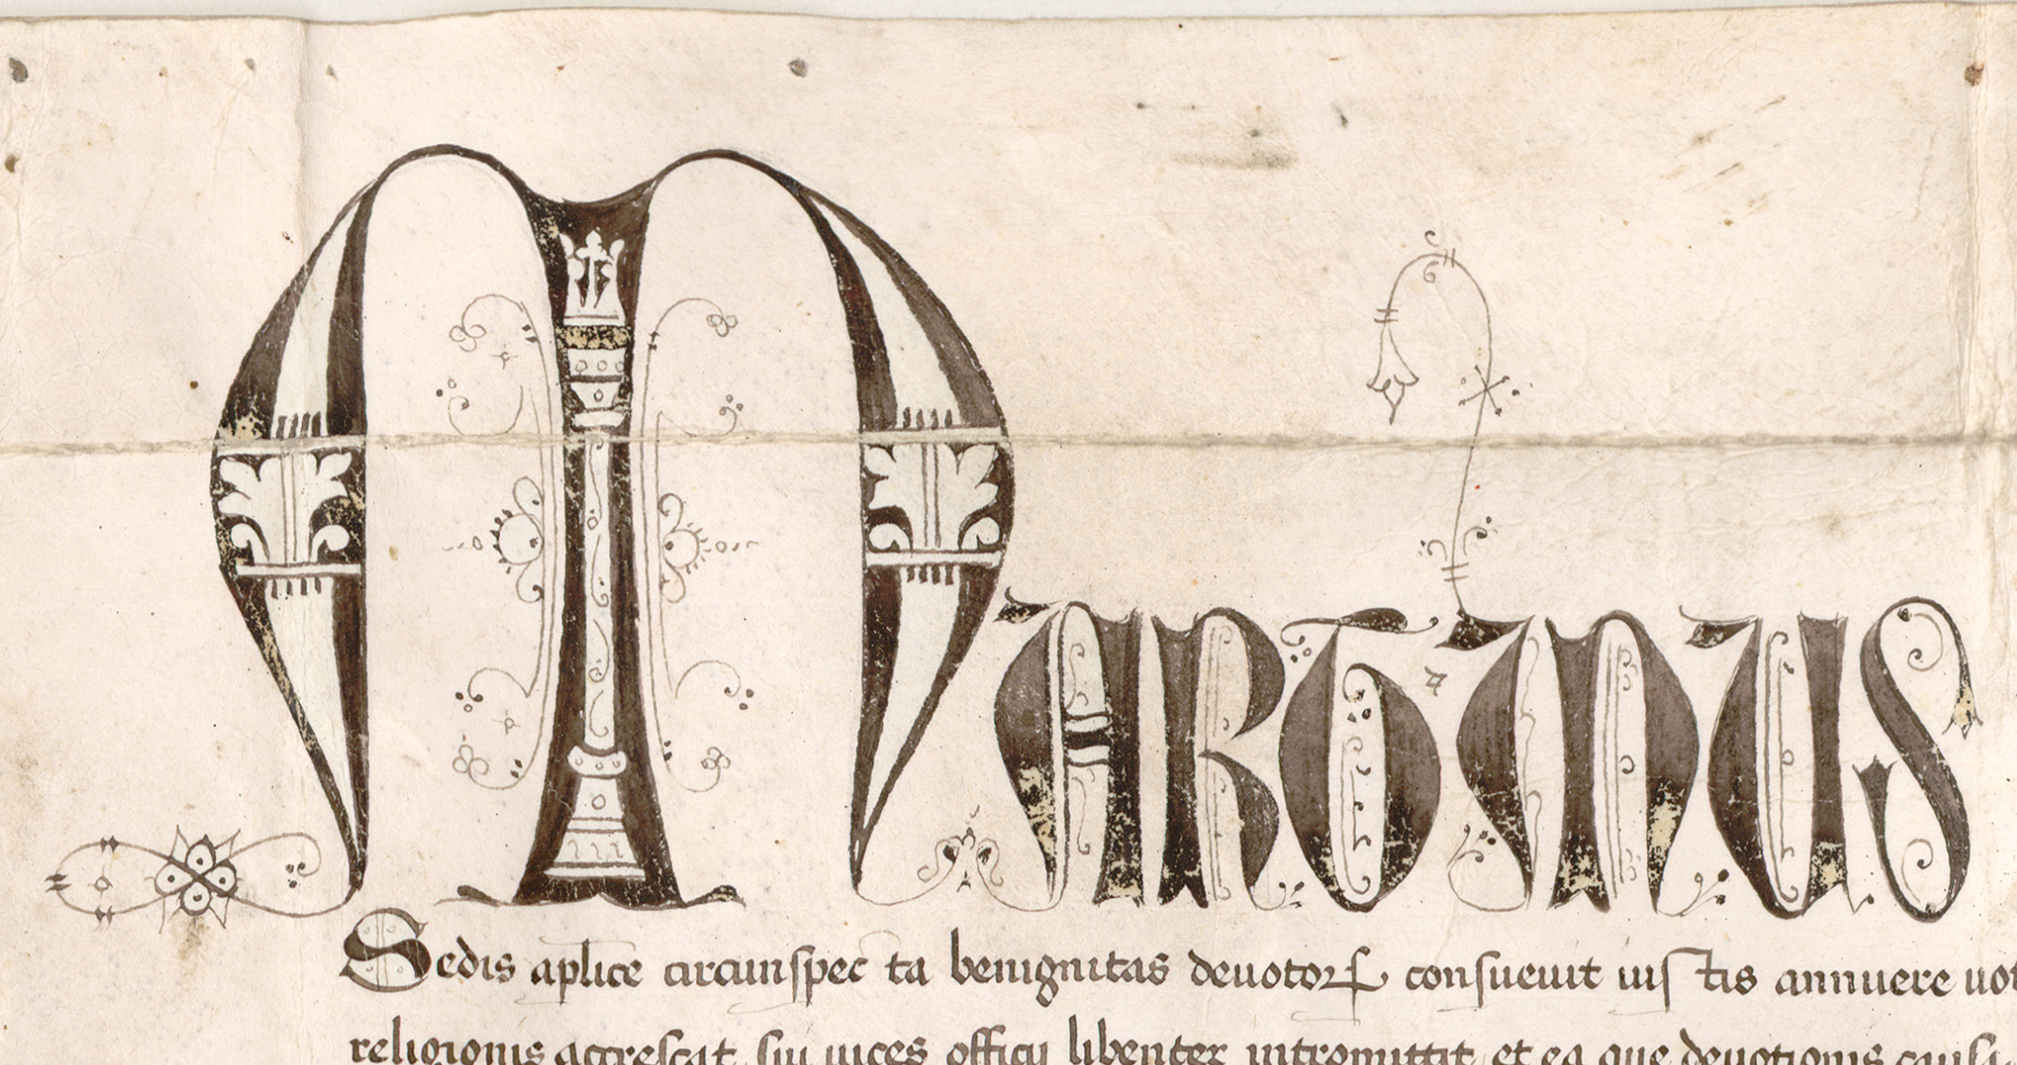 MARTINUS
Sedis aplice circunspecta benignitas deuotoꝝ consueuit iustis annuere uot
religionis accrescat sui uices officij libenter intromittit et ea que deuotionis